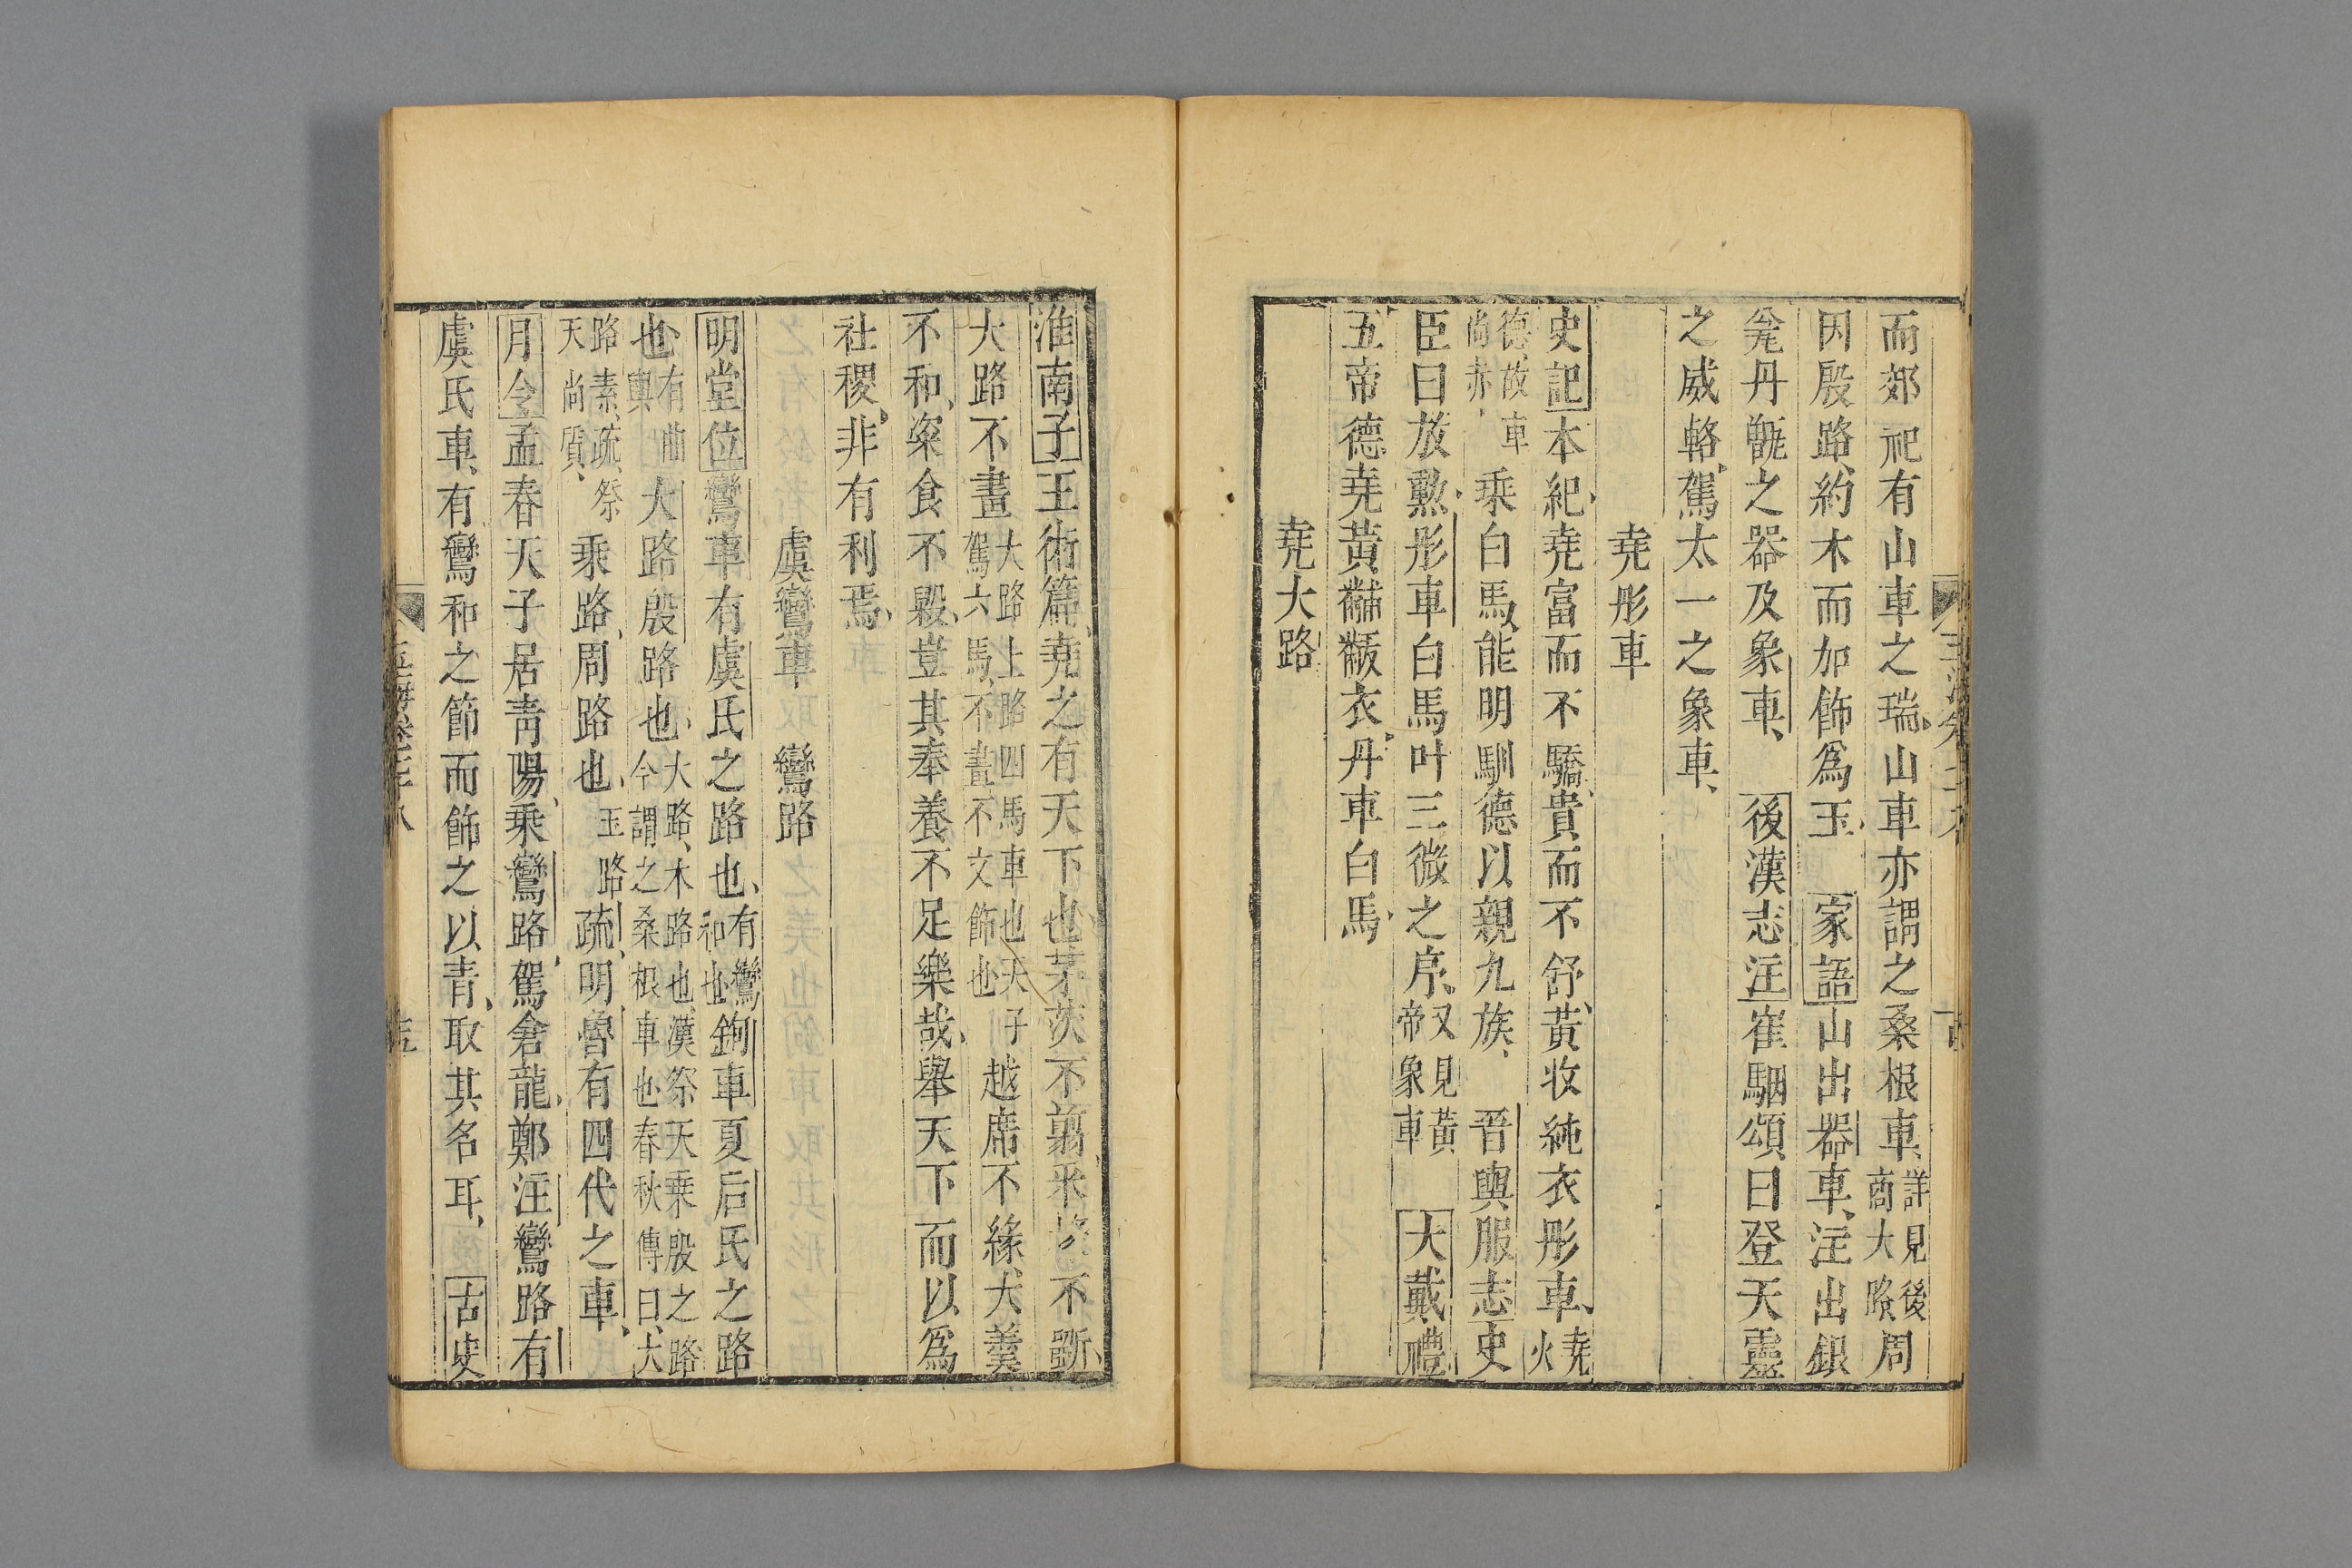 而郊祀有山車之瑞山車亦謂之桑根車詳見後商大路周
因殷路約木而加飾爲玉 家語山出器車注出銀
瓮丹甑之器及象車 後漢志注崔駰頌曰登天靈
之威輅駕太一之象車
堯彤車
史記本紀堯富而不驕貴而不舒黃收純衣彤車堯火
德故車尚赤乘白馬能明馴德以親九族 晉輿服志史
臣曰放勲彤車白馬叶三微之序又見黃帝象車 大戴禮
五帝德堯黃黼黻衣丹車白馬
堯大路
淮南子主術篇堯之有天下也茅茨不翦采椽不斲
大路不畫大路上路四馬車也天子駕六馬不畫不文飾也越席不緣大羹
不和粢食不毇豈其奉養不足樂哉舉天下而以爲
社稷非有利焉
虞鸞車 鸞路
明堂位鸞車有虞氏之路也有鸞和也鉤車夏后氏之路
也有曲輿大路殷路也大路木路也漢祭天乘殷之路今謂之桑根車也春秋傳曰大
路素疏祭天尚質乘路周路也玉路疏明魯有四代之車
月令孟春天子居靑陽乘鸞路駕倉龍鄭注鸞路有
虞氏車有鸞和之節而飾之以青取其名耳 古史